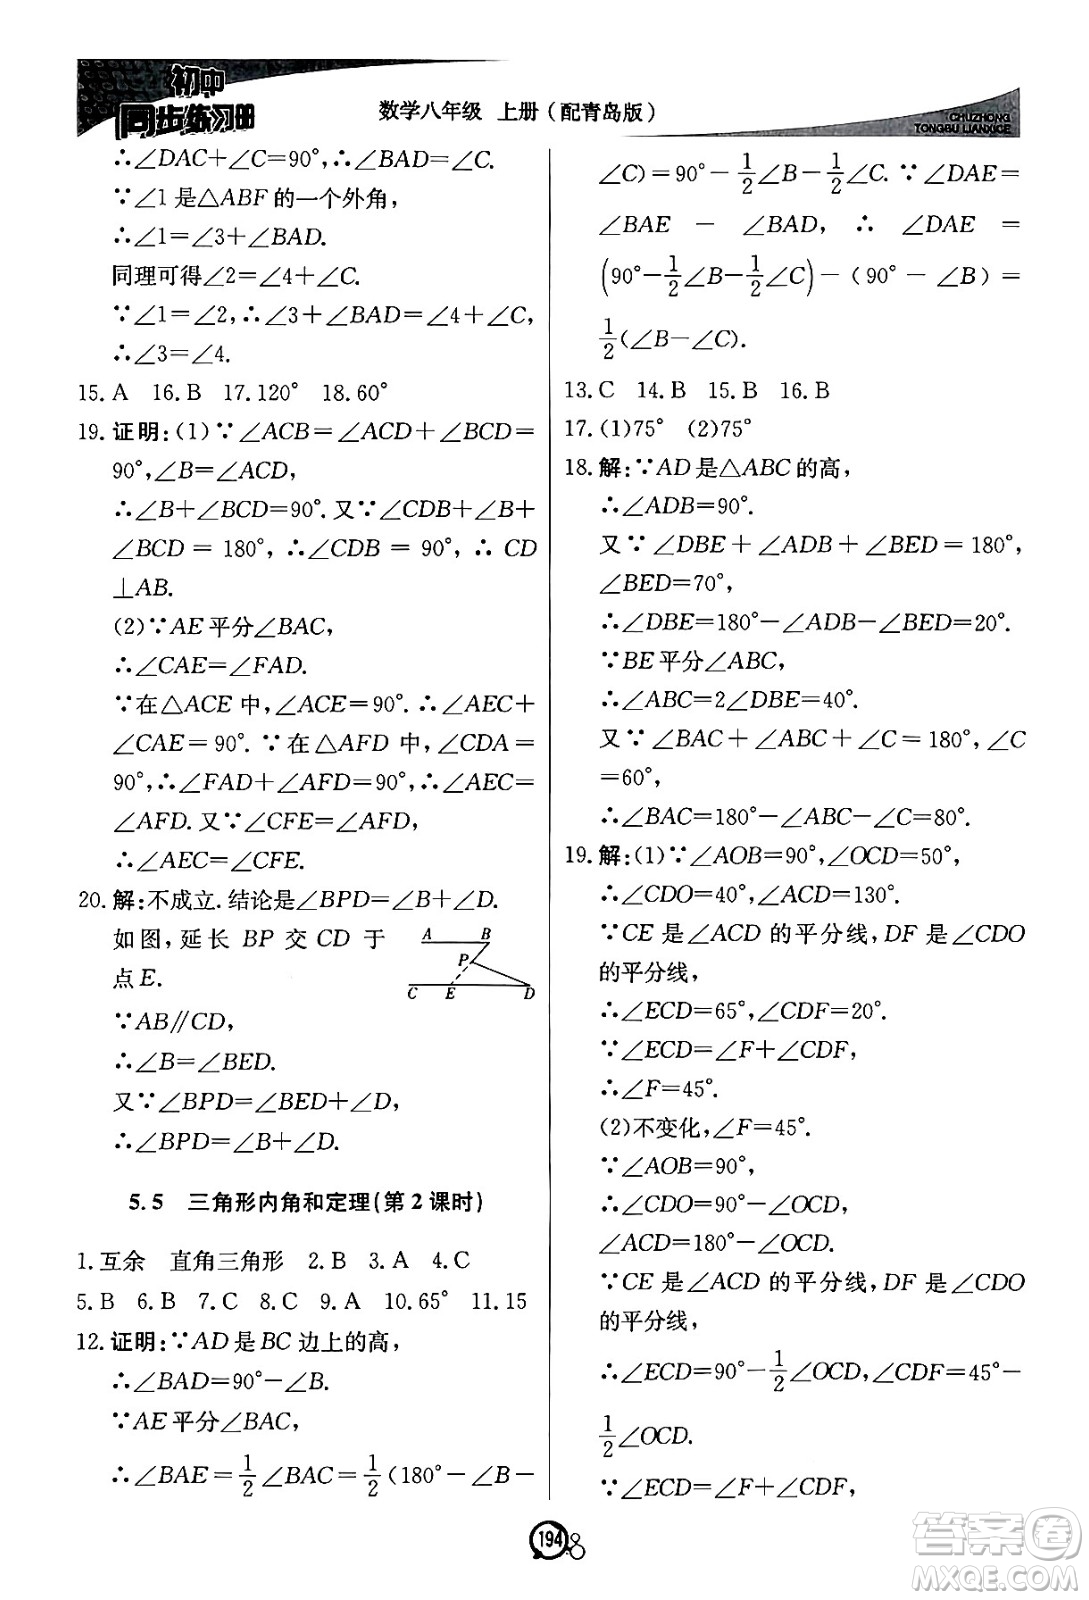 初中
同步练习册
数学八年级 上册(配青岛版)
CHUZHONG
TONGBU LIANXICE
∴∠DAC+∠C=90°,∴∠BAD=∠C.
∵∠1是△ABF的一个外角,
∴∠1=∠3+∠BAD.
同理可得∠2=∠4+∠C.
∵∠1=∠2,∴∠3+∠BAD=∠4+∠C,
∴∠3=∠4.
15.A 16.B 17.120° 18.60°
19.证明:(1)∵∠ACB=∠ACD+∠BCD=
90°,∠B=∠ACD,
∴∠B+∠BCD=90°.又∵∠CDB+∠B+
∠BCD=180°,∴∠CDB=90°,∴CD
⊥AB.
(2)∵AE平分∠BAC,
∴∠CAE=∠FAD.
∵在△ACE中,∠ACE=90°.∴∠AEC+
∠CAE=90°.∵在△AFD中,∠CDA=
90°,∴∠FAD+∠AFD=90°,∴∠AEC=
∠AFD.又∵∠CFE=∠AFD,
∴∠AEC=∠CFE.
20.解:不成立.结论是∠BPD=∠B+∠D.
如图,延长BP交CD于
点E.
A B
P
C E D
∵AB∥CD,
∴∠B=∠BED.
又∵∠BPD=∠BED+∠D,
∴∠BPD=∠B+∠D.
5.5 三角形内角和定理(第2课时)
1.互余 直角三角形 2.B 3.A 4.C
5.B 6.B 7.C 8.C 9.A 10.65° 11.15
12.证明:∵AD是BC边上的高,
∴∠BAD=90°-∠B.
∵AE平分∠BAC,
∴∠BAE=1/2∠BAC=1/2(180°-∠B-
∠C)=90°-1/2∠B-1/2∠C.∵∠DAE=
∠BAE-∠BAD,∴∠DAE=
(90°-1/2∠B-1/2∠C)-(90°-∠B)=
1/2(∠B-∠C).
13.C 14.B 15.B 16.B
17.(1)75° (2)75°
18.解:∵AD是△ABC的高,
∴∠ADB=90°.
又∵∠DBE+∠ADB+∠BED=180°,
∠BED=70°,
∴∠DBE=180°-∠ADB-∠BED=20°.
∵BE平分∠ABC,
∴∠ABC=2∠DBE=40°.
又∵∠BAC+∠ABC+∠C=180°,∠C
=60°,
∴∠BAC=180°-∠ABC-∠C=80°.
19.解:(1)∵∠AOB=90°,∠OCD=50°,
∴∠CDO=40°,∠ACD=130°.
∵CE是∠ACD的平分线,DF是∠CDO
的平分线,
∴∠ECD=65°,∠CDF=20°.
∵∠ECD=∠F+∠CDF,
∴∠F=45°.
(2)不变化,∠F=45°.
∵∠AOB=90°,
∴∠CDO=90°-∠OCD,
∠ACD=180°-∠OCD.
∵CE是∠ACD的平分线,DF是∠CDO
的平分线,
∴∠ECD=90°-1/2∠OCD,∠CDF=45°-
1/2∠OCD.
∵∠ECD=∠F+∠CDF,
194
答案卷
MXQE.COM